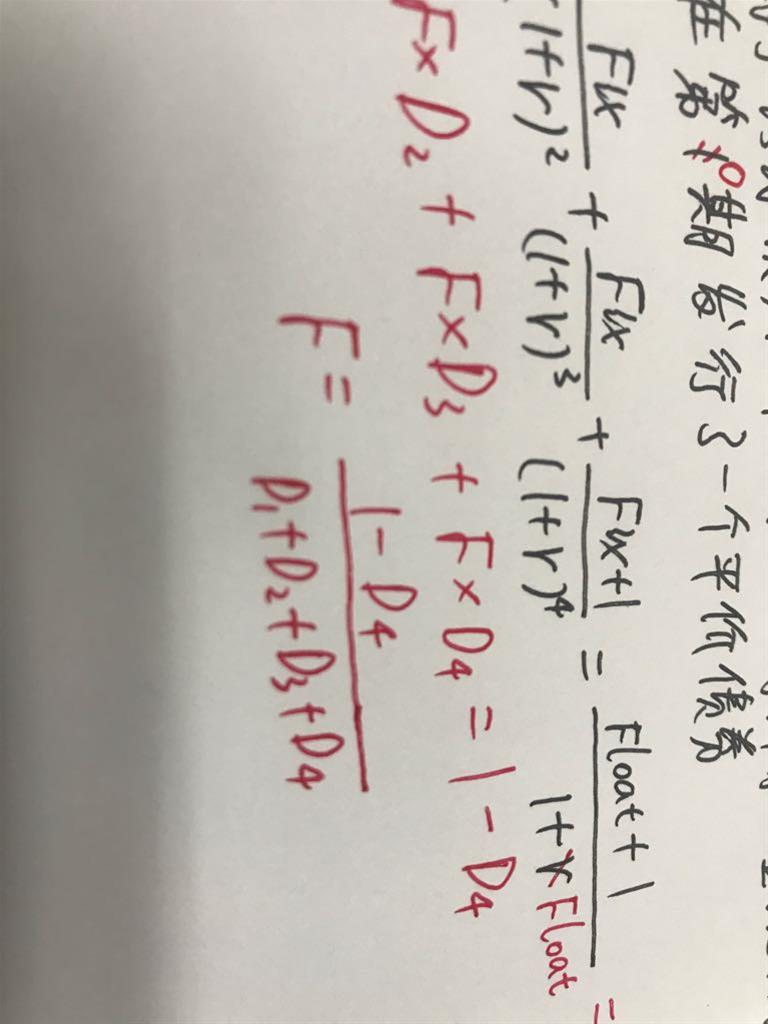 在第0期发行了一个平价债券
Fix/(1+r)² + Fix/(1+r)³ + Fix+1/(1+r)⁴ = Float+1/1+rFloat =
F×D₂ + F×D₃ + F×D₄ = 1-D₄
F = 1-D₄/D₁+D₂+D₃+D₄